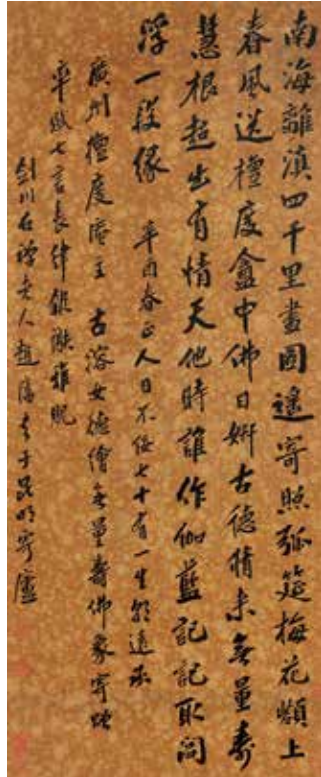 南海離滇四千里畫圖遙寄照弧筵梅花嶺上
春風送檀度龕中佛日妍古德精求無量壽
慧根超出有情天他時誰作伽藍記記取閻
浮一段緣 辛酉春正人日不佞七十有一生朝遠承
廣州檀度庵主 古溶女德繪無量壽佛象寄贈
率賦七言長律報謝雅貺
劍川石禪老人趙藩書于昆明寄廬